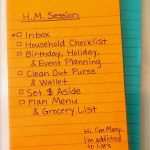 H.M. Session
Inbox
Household Checklist
Birthday, Holiday,
& Event Planning
Clean Out Purse
& Wallet
Set $ Aside
Plan Menu
& Grocery List
Hi, I'm Mary.
I'm addicted
to lists